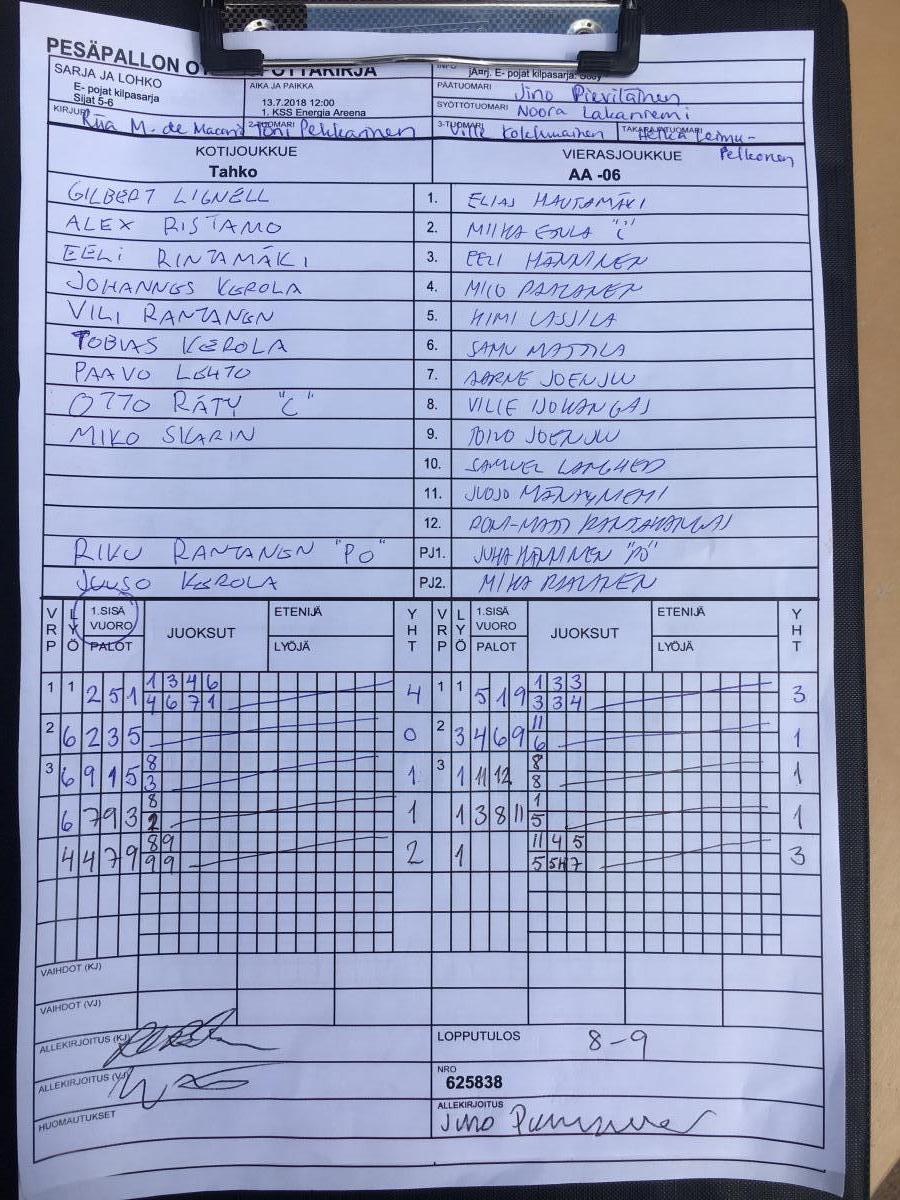 PESÄPALLON OTTELUPÖYTÄKIRJA
SARJA JA LOHKO
E- pojat kilpasarja
Sijat 5-6
AIKA JA PAIKKA
13.7.2018 12:00
1. KSS Energia Areena
INFO
jÄrj. E- pojat kilpasarja:
PÄÄTUOMARI Jino
SYÖTTÖTUOMARI Noora Lakanniemi
KIRJURI Riia M. de
2-TUOMARI Toni Pekkarinen
3-TUOMARI Ville Kolehmainen
TAKARAJATUOMARI
Pelkonen
KOTIJOUKKUE
Tahko
VIERASJOUKKUE
AA -06
GILBERT LIGNELL 1. ELIAS HAUTAMÄKI
ALEX RISTAMO 2. MIIKA "C"
EELI RINTAMÄKI 3. EELI HÄNNINEN
JOHANNES KEROLA 4.
VILI RANTANEN 5. KIMI LASSILA
TOBIAS KEROLA 6. SAMU MATTILA
PAAVO LEHTO 7. AARNE JOENJUU
OTTO RÄTY "C" 8. VILLE
MIKO SKARIN 9. TOIVO JOENJUU
10. SAMUEL
11. JUUSO MÄNTYNIEMI
12. RANTAKANGAS
RIKU RANTANEN "PO" PJ1. JUHA HÄNNINEN "PO"
JUUSO KEROLA PJ2. MIKA
VRP LYÖ 1.SISÄ VUORO PALOT JUOKSUT ETENIJÄ LYÖJÄ YHT VRP LYÖ 1.SISÄ VUORO PALOT JUOKSUT ETENIJÄ LYÖJÄ YHT
1 3 4 6 1 3 3
1 1 2 5 1 4 6 7 1 4 1 1 5 1 9 3 3 4 3
11
2 6 2 3 5 0 2 3 4 6 9 6 1
8 8
3 6 9 1 5 3 1 3 1 11 12 8 1
8 1
6 7 9 3 2 1 1 3 8 11 5 1
8 9 11 4 5
4 4 7 9 9 9 2 1 5 5 7 3
VAIHDOT (KJ)
VAIHDOT (VJ)
ALLEKIRJOITUS (KJ)
LOPPUTULOS 8-9
ALLEKIRJOITUS (VJ)
NRO
625838
HUOMAUTUKSET
ALLEKIRJOITUS
Jino